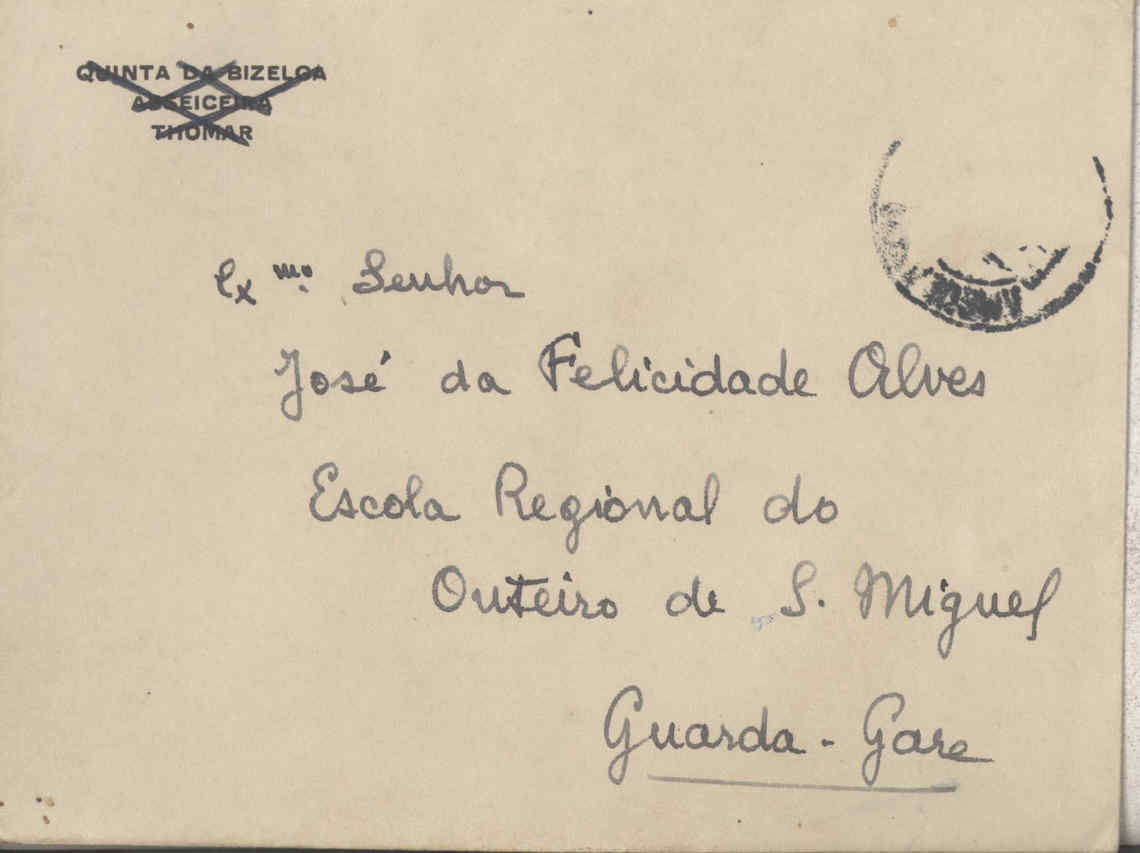 QUINTA DA BIZELGA
ASSEICEIRA
THOMAR
Exmo. Senhor
José da Felicidade Alves
Escola Regional do
Outeiro de S. Miguel
Guarda-Gare